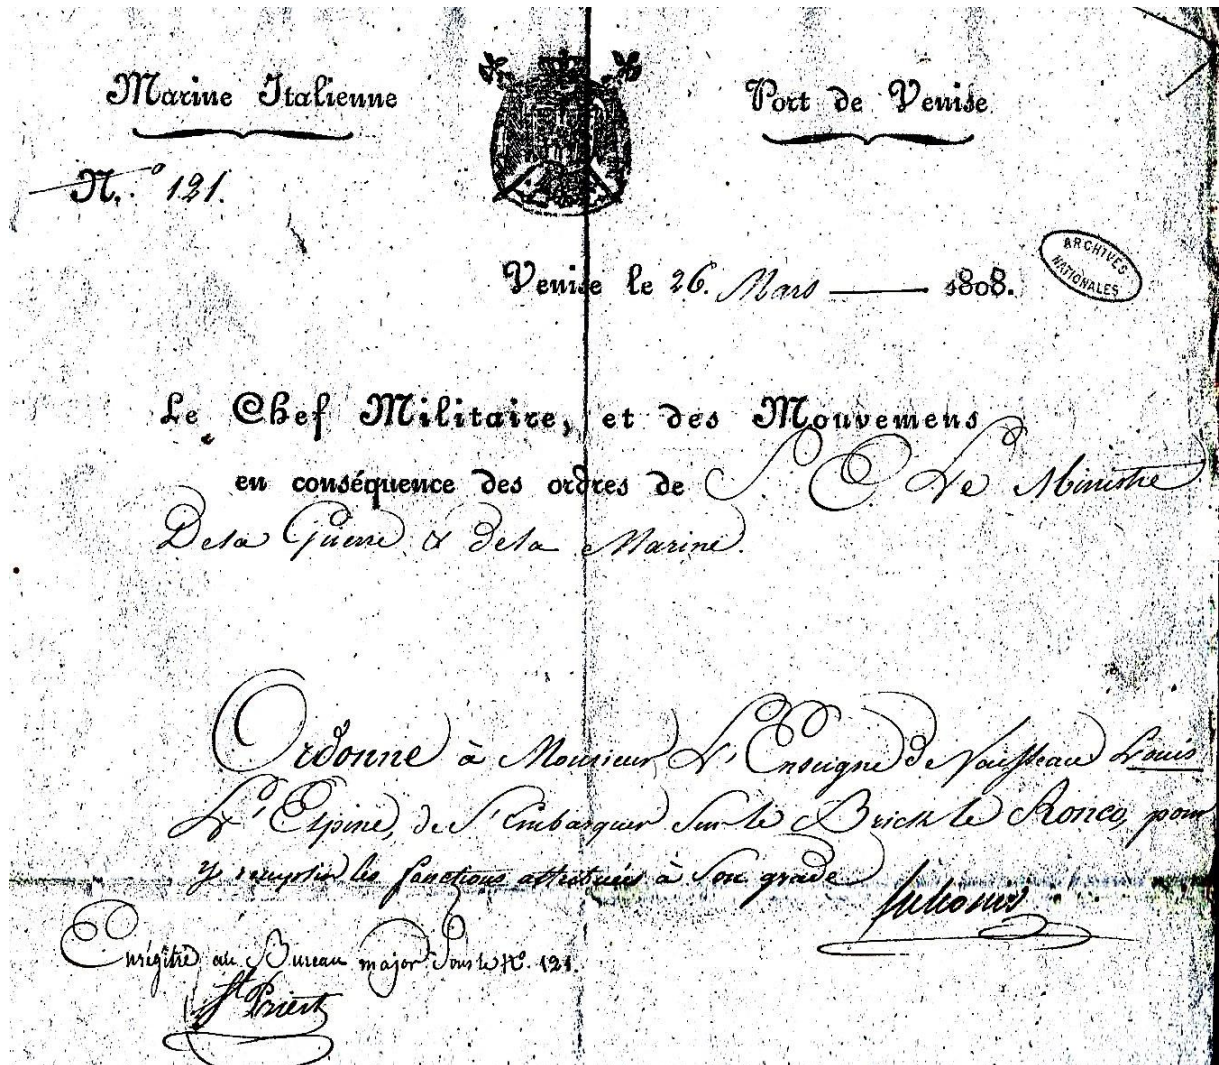 Marine Italienne
Port de Venise
N.º 121.
Venise le 26. Mars 1808.
ARCHIVES
NATIONALES
Le Chef Militaire, et des Mouvemens
en conséquence des ordres de S. E. Le Ministre
De la Guerre & de la Marine.
Ordonne à Monsieur L'Enseigne de Vaisseau Louis
L'Espine, de S'Embarquer Sur le Brick le Ronco, pour
y remplir les fonctions attribuées à Son grade
Enrégitré au Bureau major Sous le Nº. 121.
St Priest